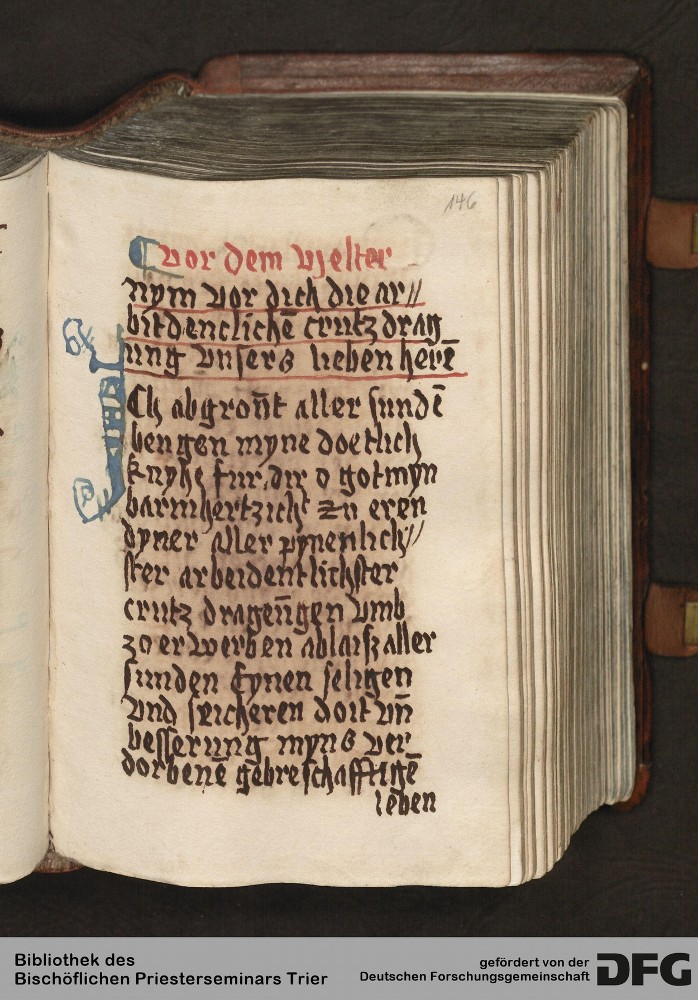 146
vor dem vjelter
nym vor dich die ar//
bitdenclichē crutz drag
ung vnsers lieben herē
Ich abgroūt aller sundē
bengen myne doetlich
knyhe fur dir o got myn
barmhertzicht zu eren
dyner aller pynenlich//
ster arbeidentlichster
crutz drageūgen vmb
zo erwerben ablaisz aller
sunden Eynen seligen
vnd sicheren doit vn̄
besserung myns ver
dorbenē gebreschafftigē
leben
Bibliothek des
Bischöflichen Priesterseminars Trier
gefördert von der
Deutschen Forschungsgemeinschaft DFG